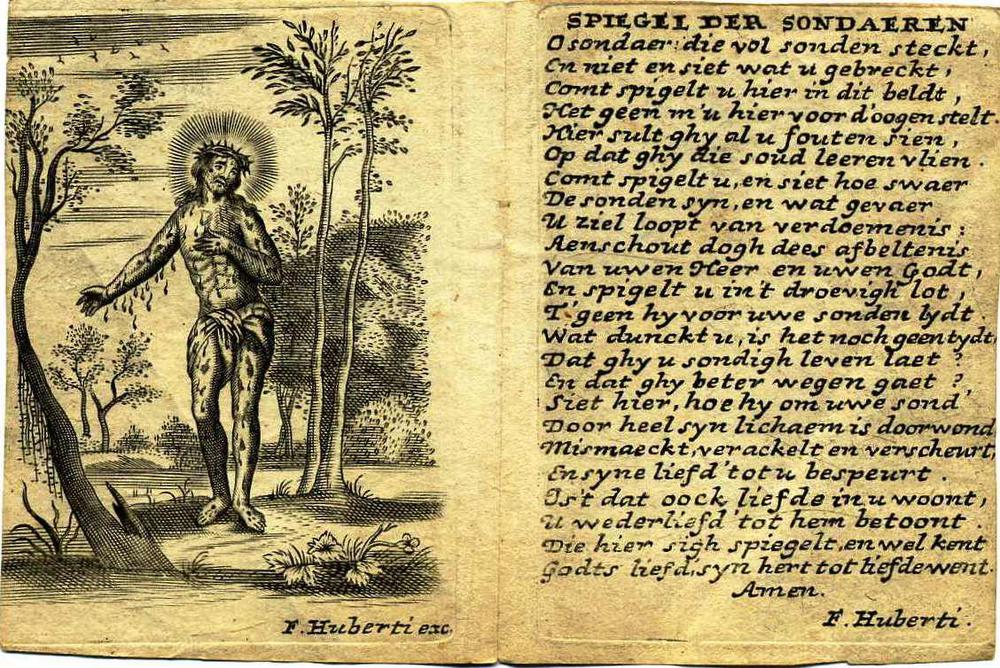 F. Huberti exc.
SPIEGEL DER SONDAEREN
O sondaer: die vol sonden steckt,
En niet en siet wat u gebreckt,
Comt spigelt u hier in dit beldt,
Het geen m'u hier voor d'oogen stelt.
Hier sult ghy al u fouten sien,
Op dat ghy die soud leeren vlien.
Comt spigelt u, en siet hoe swaer
De sonden syn, en wat gevaer
U ziel loopt van verdoemenis;
Aenschout dogh dees afbeltenis
Van uwen Heer en uwen Godt,
En spigelt u in't droevigh lot,
T'geen hy voor uwe sonden lydt.
Wat dunckt u, is het noch geen tydt,
Dat ghy u sondigh leven laet?
En dat ghy beter wegen gaet?
Siet hier, hoe hy om uwe sond'
Door heel syn lichaem is doorwond
Mismaeckt, verackelt en verscheurt,
En syne liefd' tot u bespeurt.
Is't dat oock liefde in u woont,
U wederliefd' tot hem betoont.
Die hier sigh spiegelt, en wel kent
Godts liefd, syn hert tot liefde went.
Amen.
F. Huberti.